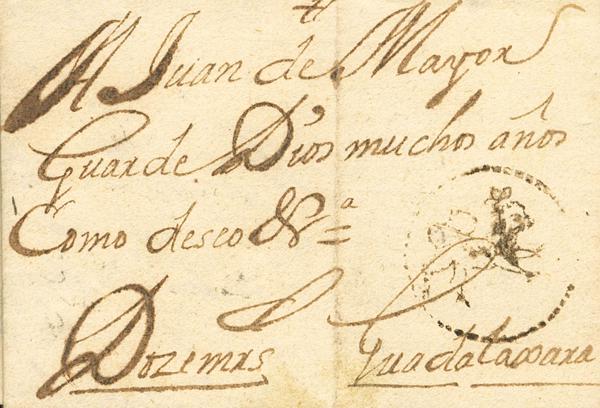 A Juan de Mayor
Guarde Dios muchos años
Como deseo &ª
Dozemrs Guadalaxara